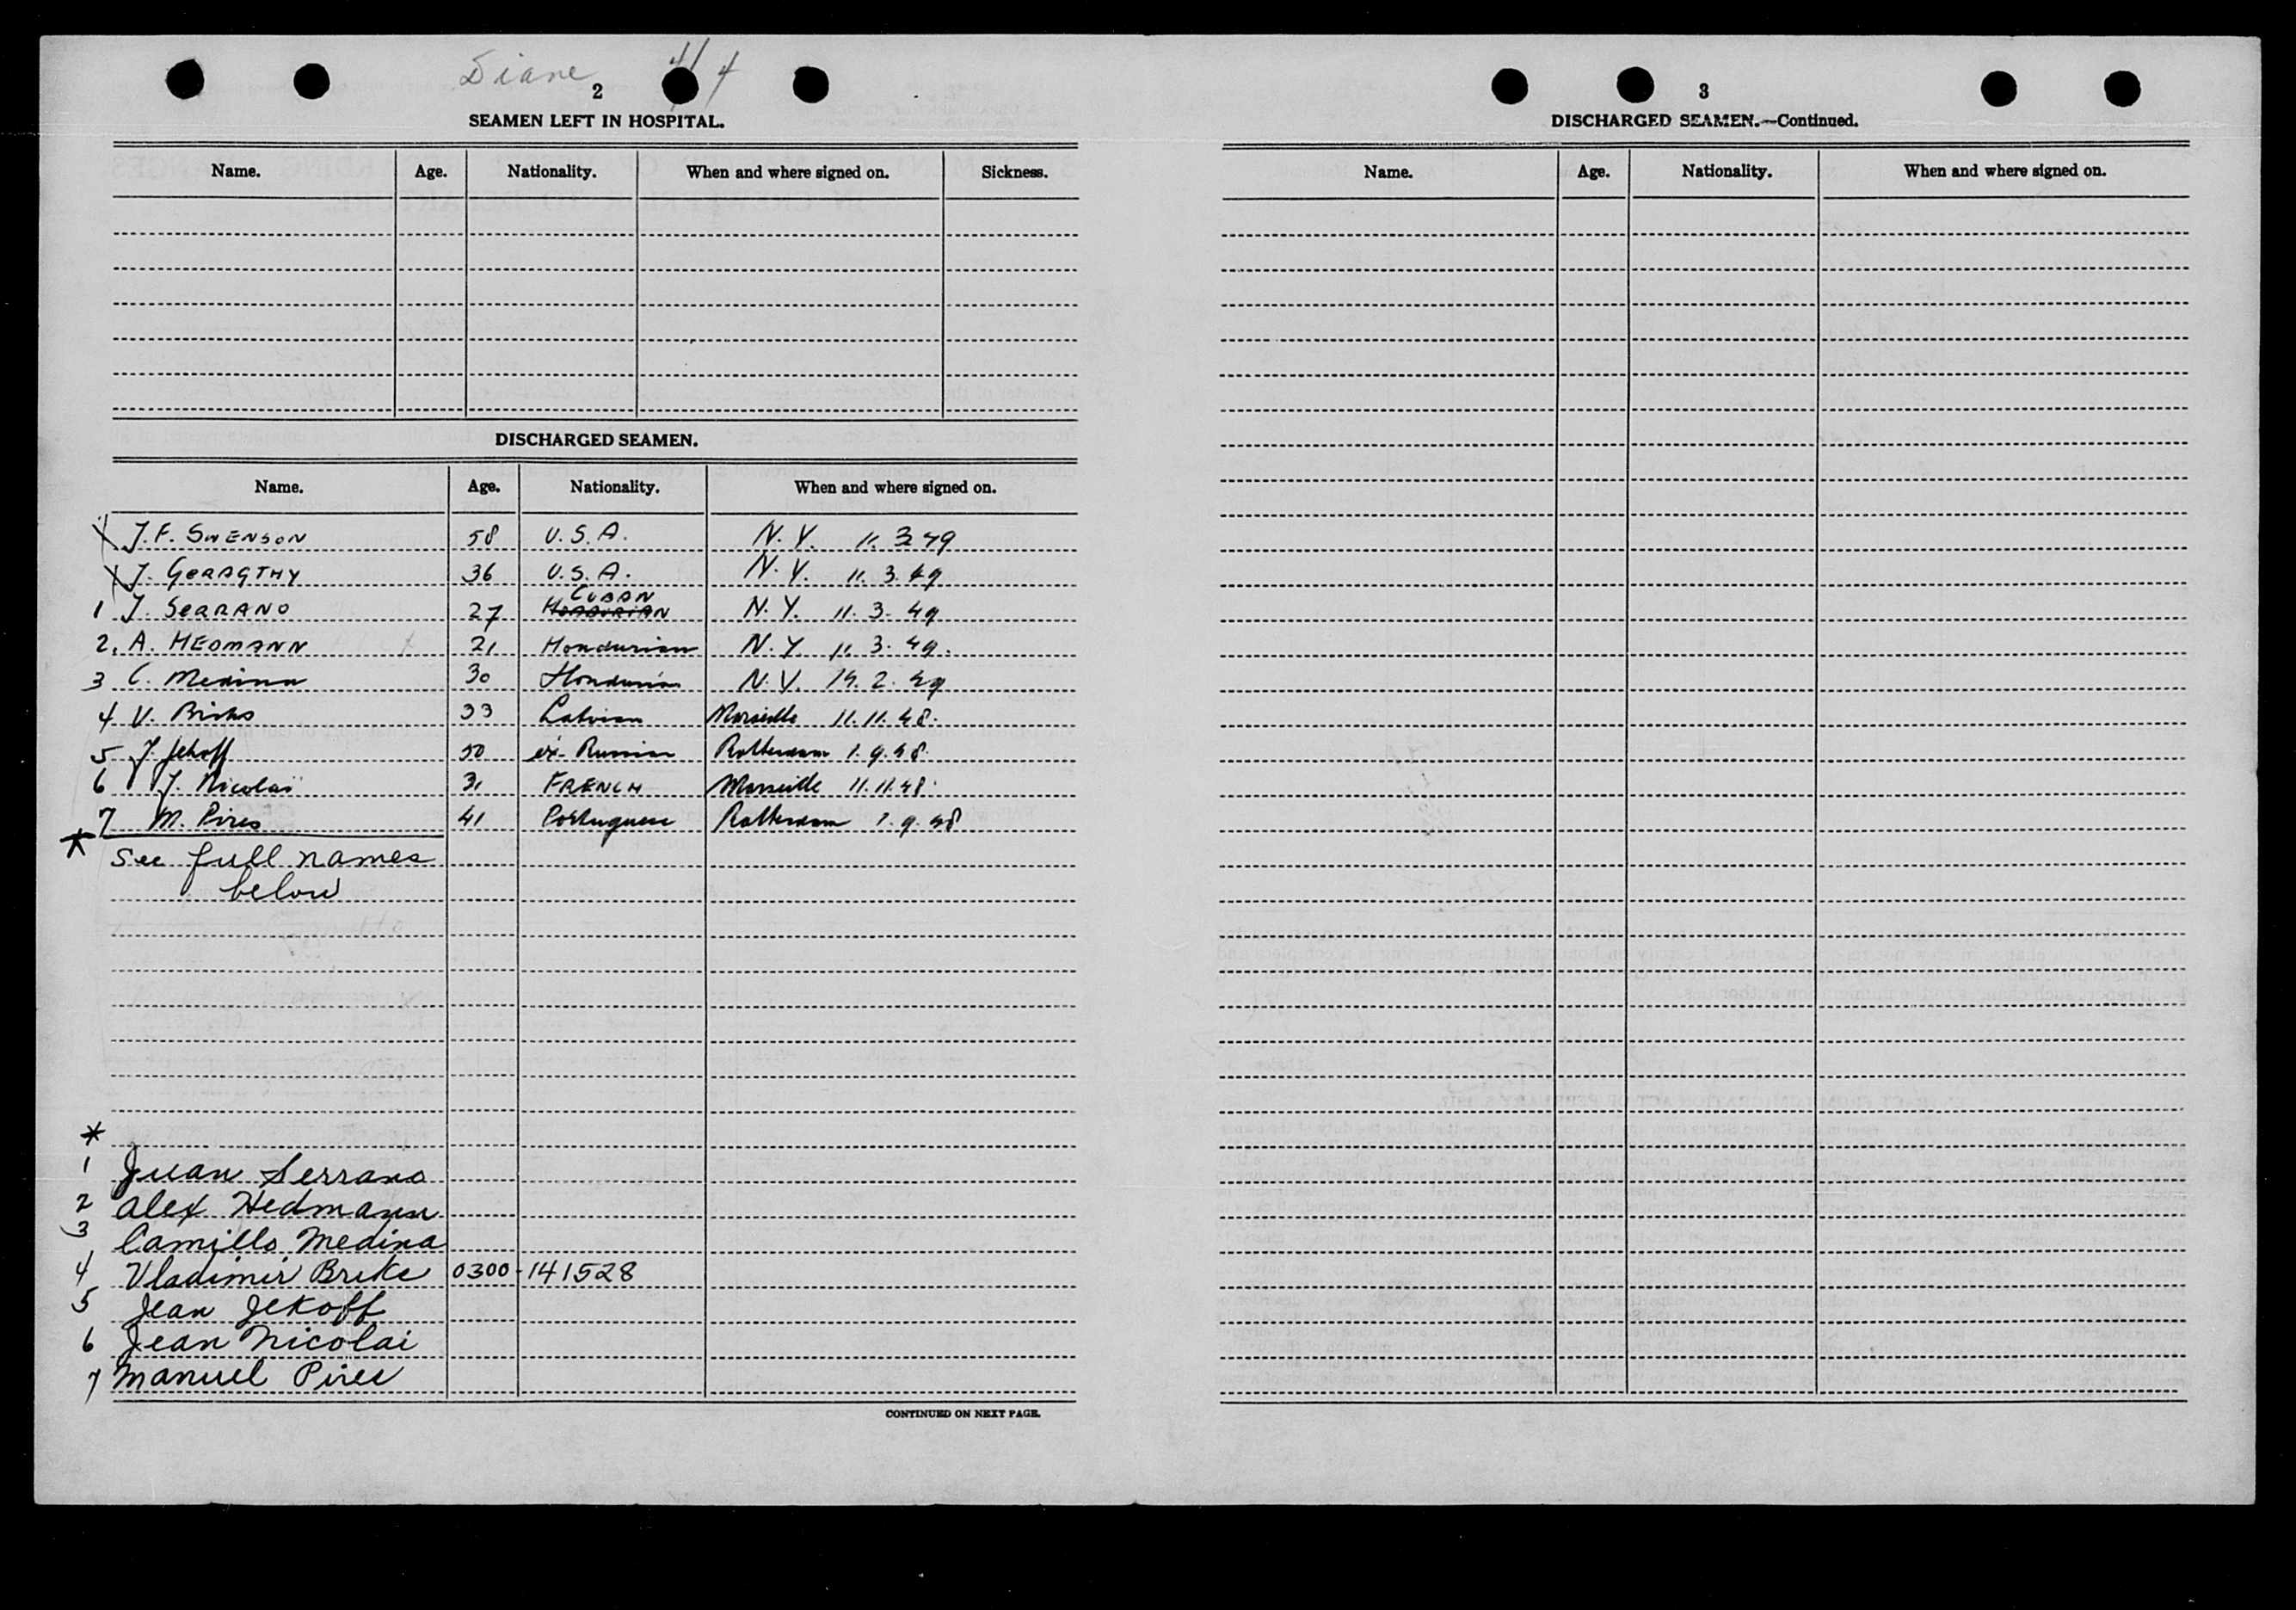 Diane 4/4
2
SEAMEN LEFT IN HOSPITAL.
Name. Age. Nationality. When and where signed on. Sickness.
DISCHARGED SEAMEN.
Name. Age. Nationality. When and where signed on.
J. F. SWENSON 58 U.S.A. N.Y. 11. 3 49
J. GERAGTHY 36 U.S.A. N.Y. 11. 3. 49
CUBAN
1 J. SERRANO 27 N.Y. 11. 3. 49
2. A. HEDMANN 21 Hondurian N.Y. 11. 3. 49.
3 C. Medina 30 Hondurian N.Y. 14. 2. 49
4 V. 33 Latvian Marseille 11. 11. 48.
5 J. Jekoff 50 ex-Russian Rotterdam 1. 9. 48.
6 J. Nicolaï 31 FRENCH Marseille 11. 11. 48.
7 M. Pires 41 Portuguese Rotterdam 1. 9. 48
* See full names
below
*
1 Juan Serrano
2 Alex Hedmann
3 Camillo Medina
4 Vladimir Brike 0300-141528
5 Jean Jekoff
6 Jean Nicolai
7 Manuel Pires
CONTINUED ON NEXT PAGE.
3
DISCHARGED SEAMEN.—Continued.
Name. Age. Nationality. When and where signed on.